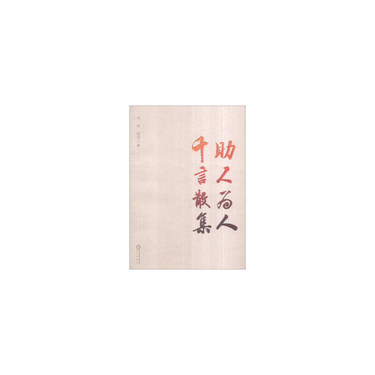 助人为人
千言散集